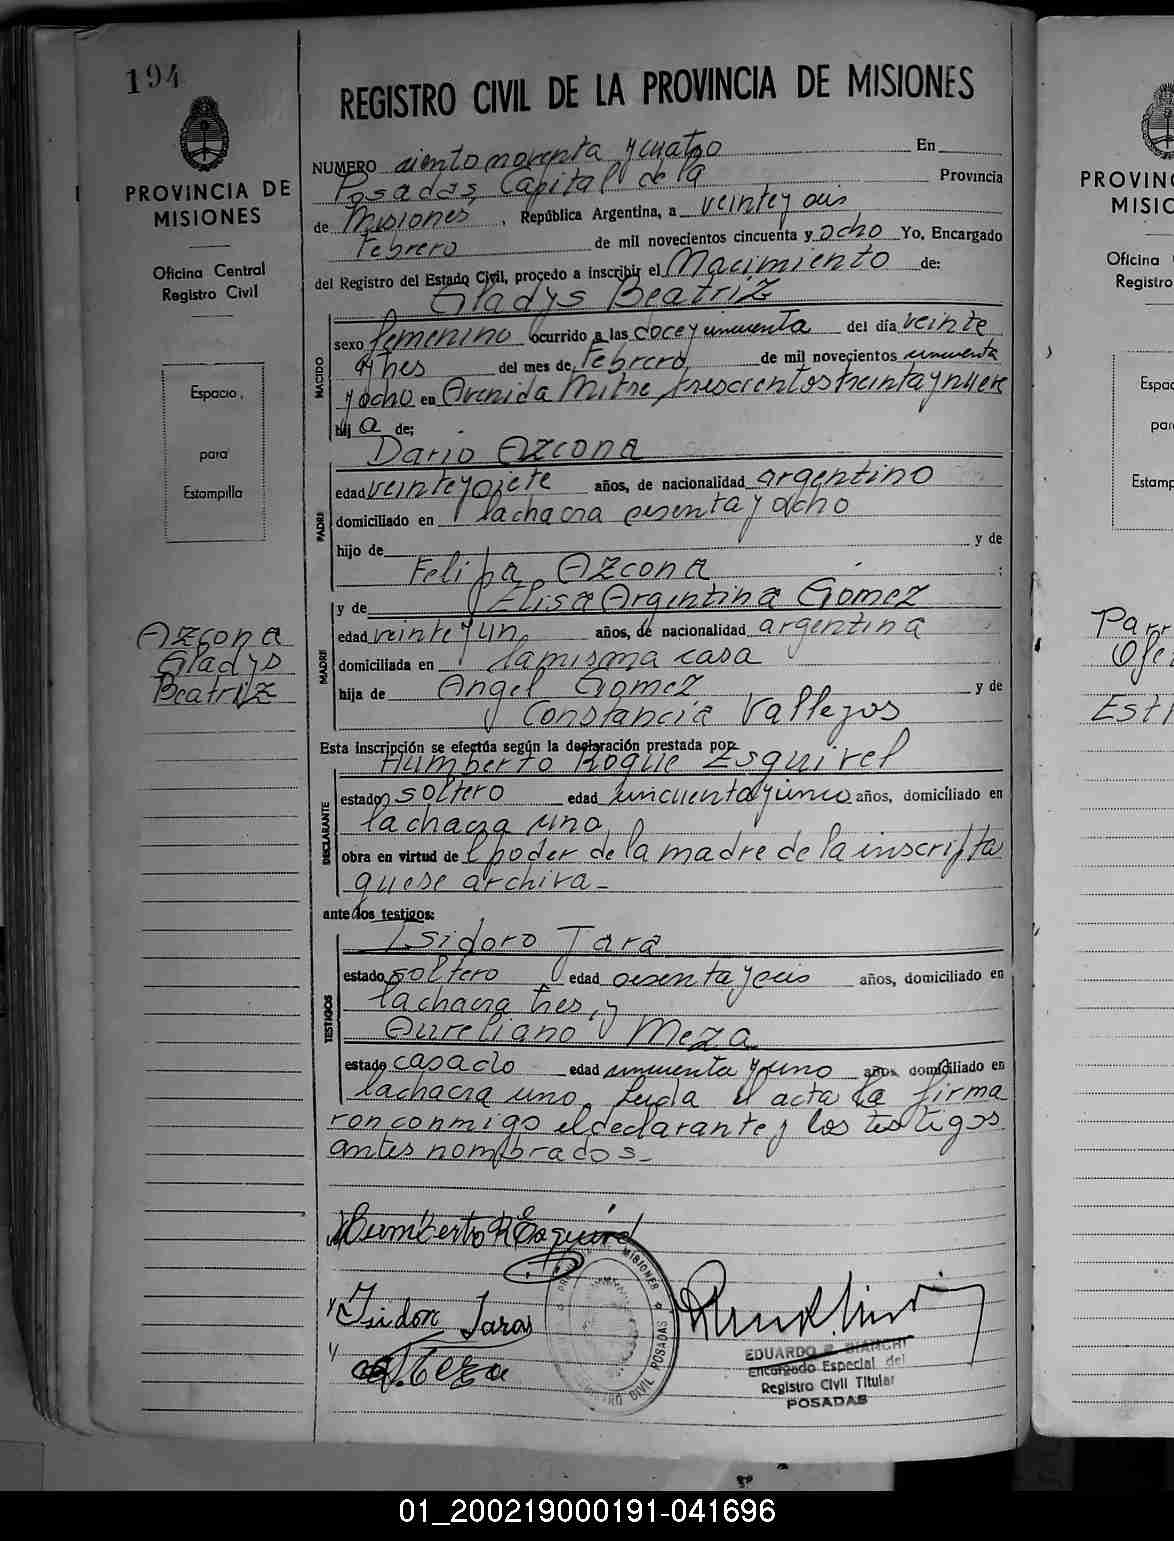 194
PROVINCIA DE
MISIONES
Oficina Central
Registro Civil
Espacio
para
Estampilla
Azcona
Gladys
Beatriz
REGISTRO CIVIL DE LA PROVINCIA DE MISIONES
NUMERO ciento noventa y cuatro En
Posadas, Capital de la Provincia
de Misiones, República Argentina, a veinte y seis
Febrero de mil novecientos cincuenta y ocho Yo, Encargado
del Registro del Estado Civil, procedo a inscribir el Nacimiento de:
Gladys Beatriz
NACIDO
sexo femenino ocurrido a las doce y cincuenta del día veinte
y tres del mes de Febrero de mil novecientos cincuenta
y ocho en Avenida Mitre trescientos treinta y nueve
hij a de:
Dario Azcona
PADRE
edad veinte y siete años, de nacionalidad argentino
domiciliado en la chacra sesenta y ocho
hijo de y de
Felipa Azcona
y de Elisa Argentina Gomez
MADRE
edad veinte y un años, de nacionalidad argentina
domiciliada en la misma casa
hija de Angel Gomez y de
Constancia Vallejos
Esta inscripción se efectúa según la declaración prestada por
Humberto Roque Esquivel
DECLARANTE
estado soltero edad cincuenta y cinco años, domiciliado en
la chacra uno
obra en virtud de l poder de la madre de la inscripta
que se archiva -
ante los testigos:
Isidoro Jara
TESTIGOS
estado soltero edad sesenta y seis años, domiciliado en
la chacra tres, y
Aureliano Meza
estado casado edad cincuenta y uno años domiciliado en
la chacra uno. Leida el acta la firma
ron conmigo el declarante y los testigos
antes nombrados -
Humberto R Esquivel
Isidoro Jara
A. Meza
MISIONES
REGISTRO CIVIL POSADAS
EDUARDO R. BIANCHI
Encargado Especial del
Registro Civil Titular
POSADAS
PROVINC
MISIO
Oficina
Registro
Espac
para
Estamp
Parr
Ofe
Est
01_200219000191-041696